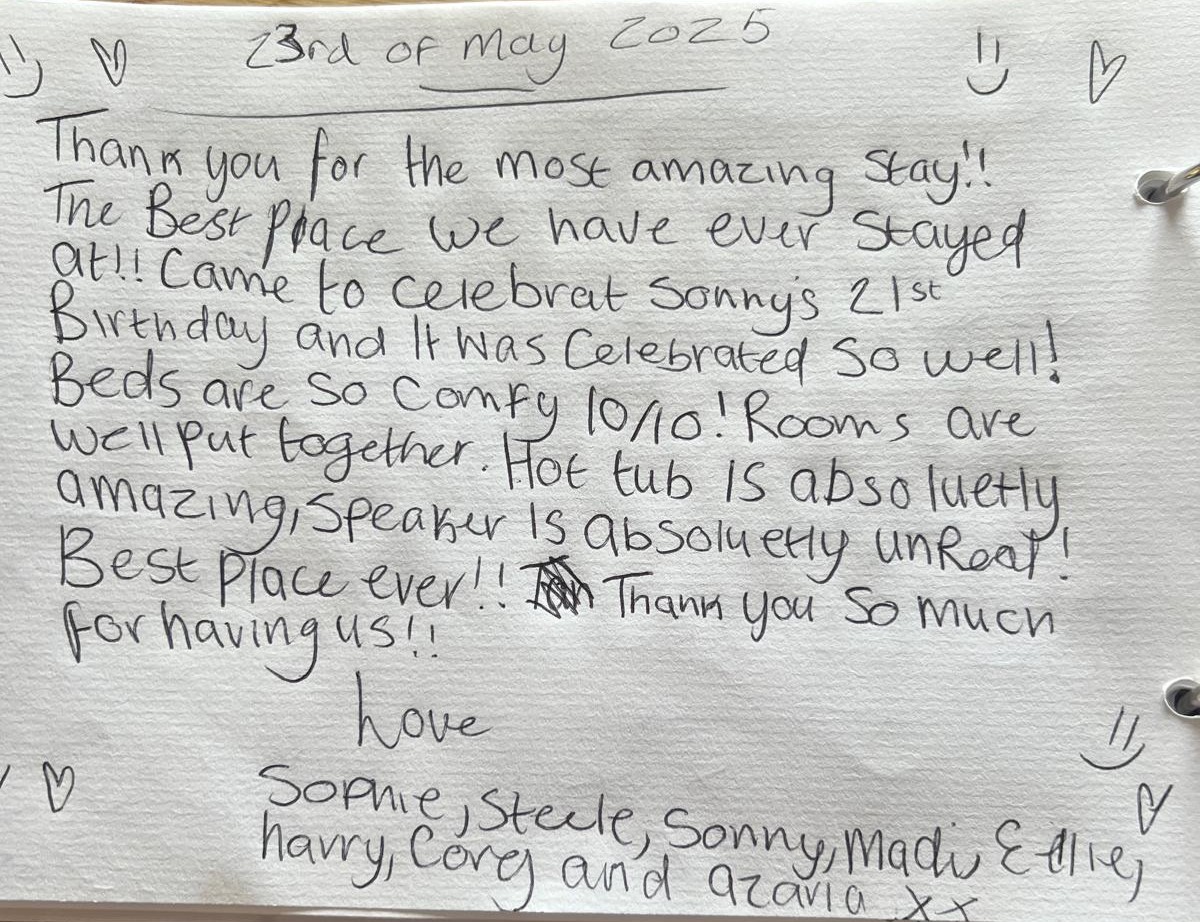 23rd of may 2025
Thank you for the most amazing Stay!!
The Best Place we have ever Stayed
at!! Came to celebrat Sonny's 21st
Birthday and It was Celebrated So well!
Beds are So Comfy 10/10! Rooms are
well put together. Hot tub Is absoluetly
amazing, Speaker Is absoluetly unReal!
Best Place ever!! Thank you So much
for having us!!
Love
Sophie, Steele, Sonny, Madi, Ellie,
harry, Corey and azaria xx